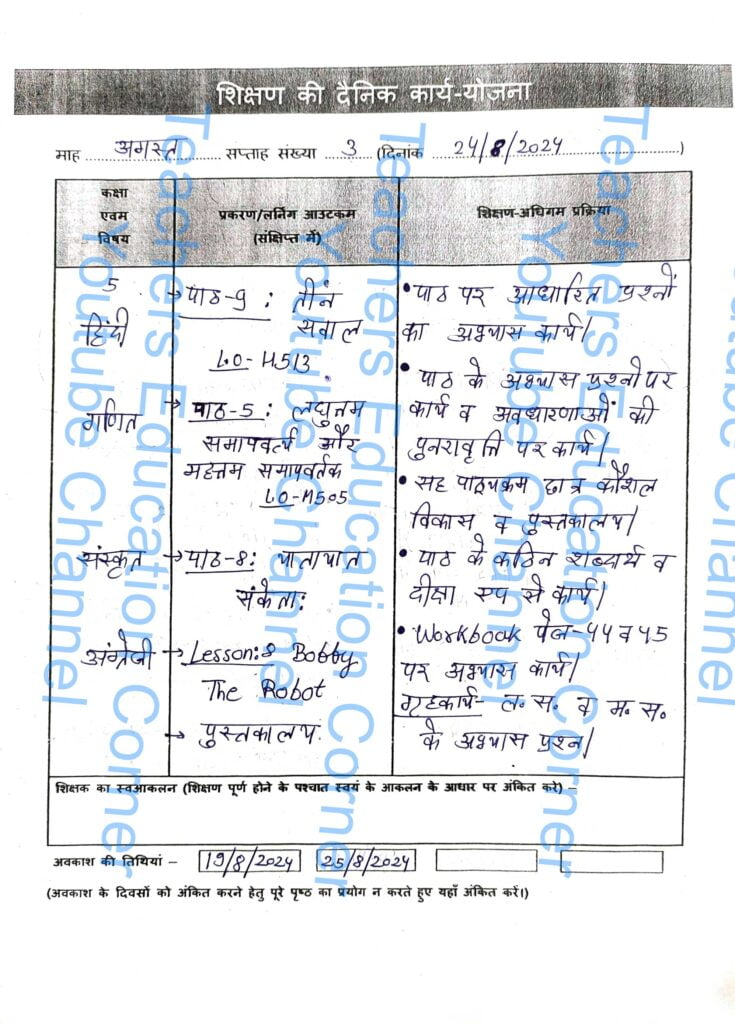 शिक्षण की दैनिक कार्य-योजना
माह अगस्त सप्ताह संख्या 3 (दिनांक 24/8/2024)
कक्षा
एवम
विषय
प्रकरण/लर्निंग आउटकम
(संक्षिप्त में)
शिक्षण-अधिगम प्रक्रिया
5
हिंदी
→ पाठ-9 : तीन
सवाल
LO-H513
• पाठ पर आधारित प्रश्नों
का अभ्यास कार्य।
गणित
→ पाठ-5 : लघुत्तम
समापवर्त्य और
महत्तम समापवर्तक
LO-M505
• पाठ के अभ्यास प्रश्नो पर
कार्य व अवधारणाओं की
पुनरावृत्ति पर कार्य।
• सह पाठ्यक्रम छात्र कौशल
विकास व पुस्तकालय।
संस्कृत
→ पाठ-8: यातायात
संकेता:
• पाठ के कठिन शब्दार्थ व
दीक्षा एप से कार्य।
अंग्रेजी
→ Lesson:8 Bobby
The Robot
• Workbook पेज-44 व 45
पर अभ्यास कार्य।
→ पुस्तकालय
गृहकार्य- ल. स. व म. स.
के अभ्यास प्रश्न।
शिक्षक का स्वआकलन (शिक्षण पूर्ण होने के पश्चात स्वयं के आकलन के आधार पर अंकित करे) –
अवकाश की तिथियां – 19/8/2024 25/8/2024
(अवकाश के दिवसों को अंकित करने हेतु पूरे पृष्ठ का प्रयोग न करते हुए यहाँ अंकित करें।)
Teachers Education Corner
Youtube Channel
Teachers Education Corner
Youtube Channel
Teachers Education Corner
Youtube Channel